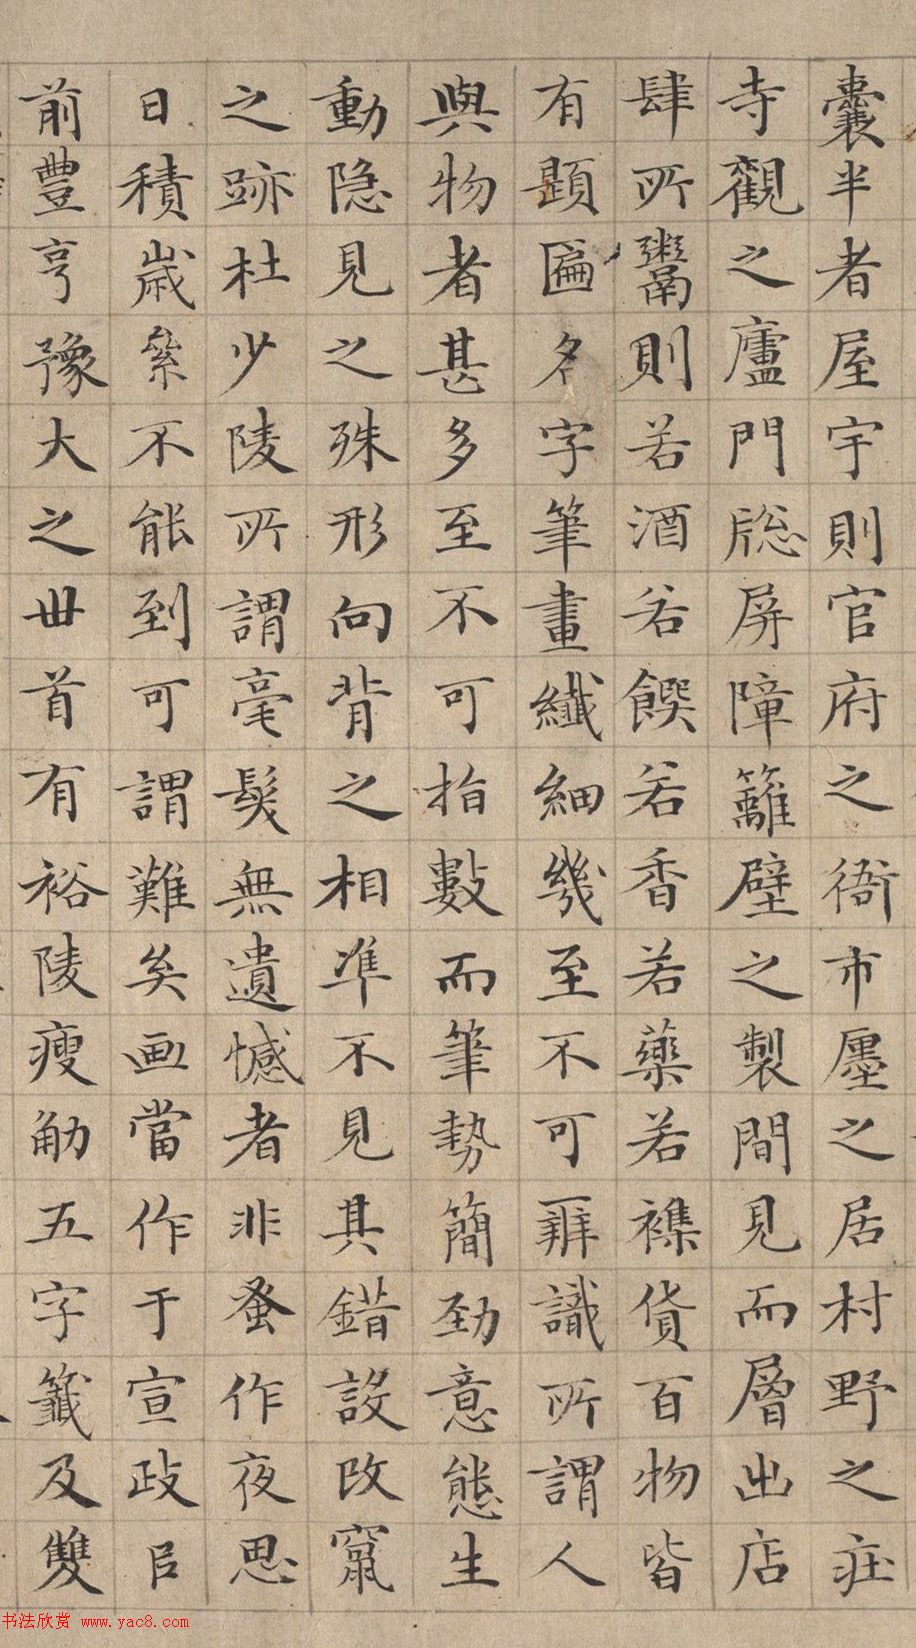 囊半者屋宇則官府之衙市廛之居村野之莊
寺觀之廬門牕屏障籬壁之製間見而層出店
肆所鬻則若酒若饌若香若藥若襍貨百物皆
有題匾名字筆畫纖細幾至不可辨識所謂人
與物者甚多至不可指數而筆勢簡勁意態生
動隐見之殊形向背之相準不見其錯誤改竄
之跡杜少陵所謂毫髮無遺憾者非蚤作夜思
日積歲絫不能到可謂難矣画當作于宣政㠯
前豐亨豫大之丗首有裕陵瘦觔五字籤及雙
书法欣赏 www.yac8.com